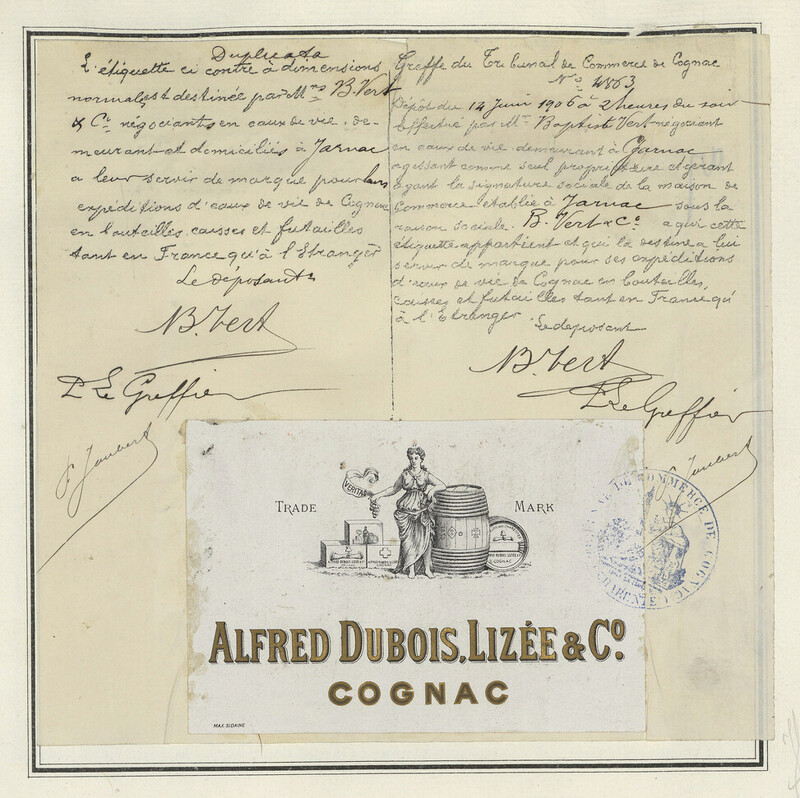 Duplicata
L'étiquette ci contre à dimensions
normales & destinée par Mrs B. Vert
& Cie négociants en eaux de vie, de-
meurant et domiciliés à Jarnac
a leur servir de marque pour leurs
expéditions d'eaux de vie de Cognac
en bouteilles, caisses et futailles
tant en France qu'à l'Etranger
Le déposant
B. Vert
Le Greffier
Greffe du Tribunal de Commerce de Cognac
No 4863
Dépôt du 14 Juin 1906 à 2 heures du soir
effectué par Mr Baptiste Vert négociant
en eaux de vie demeurant à Jarnac
agissant comme seul propriétaire et gérant
ayant la signature sociale de la maison de
Commerce établie à Jarnac sous la
raison sociale. B. Vert & Co a qui cette
étiquette appartient et qui la destine a lui
servir de marque pour ses expéditions
d'eaux de vie de Cognac en bouteilles,
caisses et futailles tant en France qu'
à l'Etranger
Le deposant
B. Vert
Le Greffier
VERITAS
TRADE MARK
ALFRED DUBOIS, LIZÉE & Co.
COGNAC
COMMERCE DE COGNAC
CHARENTE